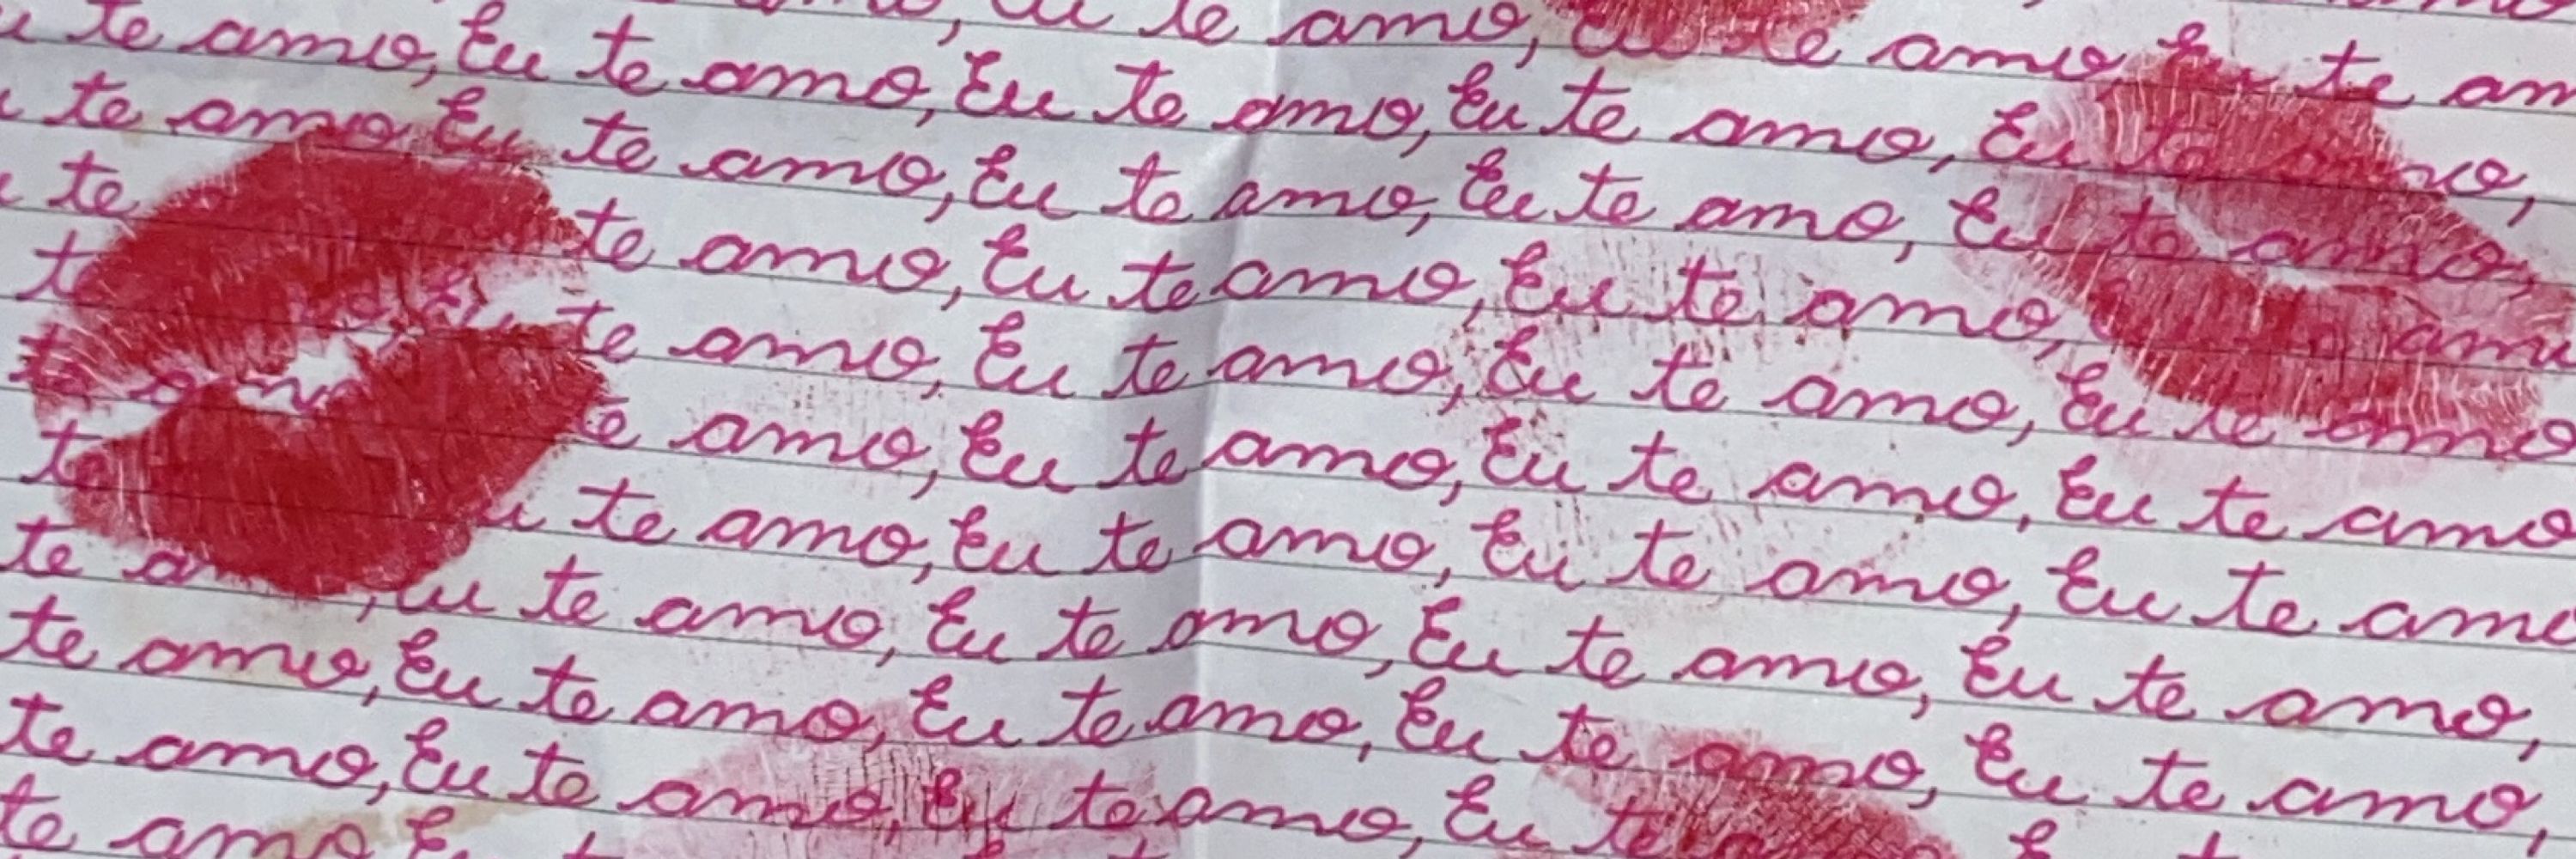 amo, Eu te amo, Eu te amo Eu te am
u te amo, Eu te amo, Eu te amo, Eu te amo, Eu te amo,
te amo Eu te amo, Eu te amo, Eu te amo, Eu te amo,
te te amo, Eu te amo, Eu te amo, amo
te Eu te amo, Eu te amo, Eu te amo, Eu te amo
te am te amo, Eu te amo, Eu te amo, Eu te amo
te u te amo, Eu te amo, Eu te amo, Eu te amo
te a , Eu te amo, Eu te amo, Eu te amo, Eu te amo,
te amo, Eu te amo, Eu te amo, Eu te amo, Eu te amo,
te amo, Eu te amo, Eu te amo, Eu te
te amo E